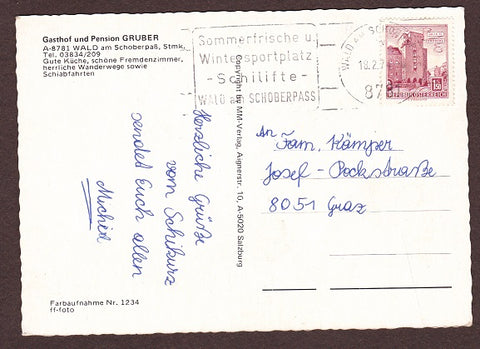 Gasthof und Pension GRUBER
A-8781 WALD am Schoberpaß, Stmk.
Tel. 03834/209
Gute Küche, schöne Fremdenzimmer,
herrliche Wanderwege sowie
Schiabfahrten
Sommerfrische u.
Wintersportplatz
- Schilifte -
WALD am SCHOBERPASS
WALD AM SCHO
18.2.7
878
REPUBLIK ÖSTERREICH
Herzliche Grüße
vom Schikurs
sendet Euch allen
Michel
Copyright by MM-Verlag, Aignerstr. 10, A-5020 Salzburg
An
Fam. Kämper
Josef - Pockstraße
8051 Graz
Farbaufnahme Nr. 1234
ff-foto